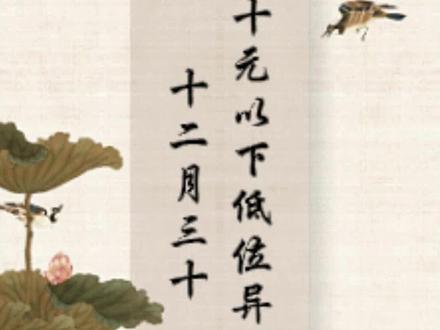 十元以下低位异
十二月三十